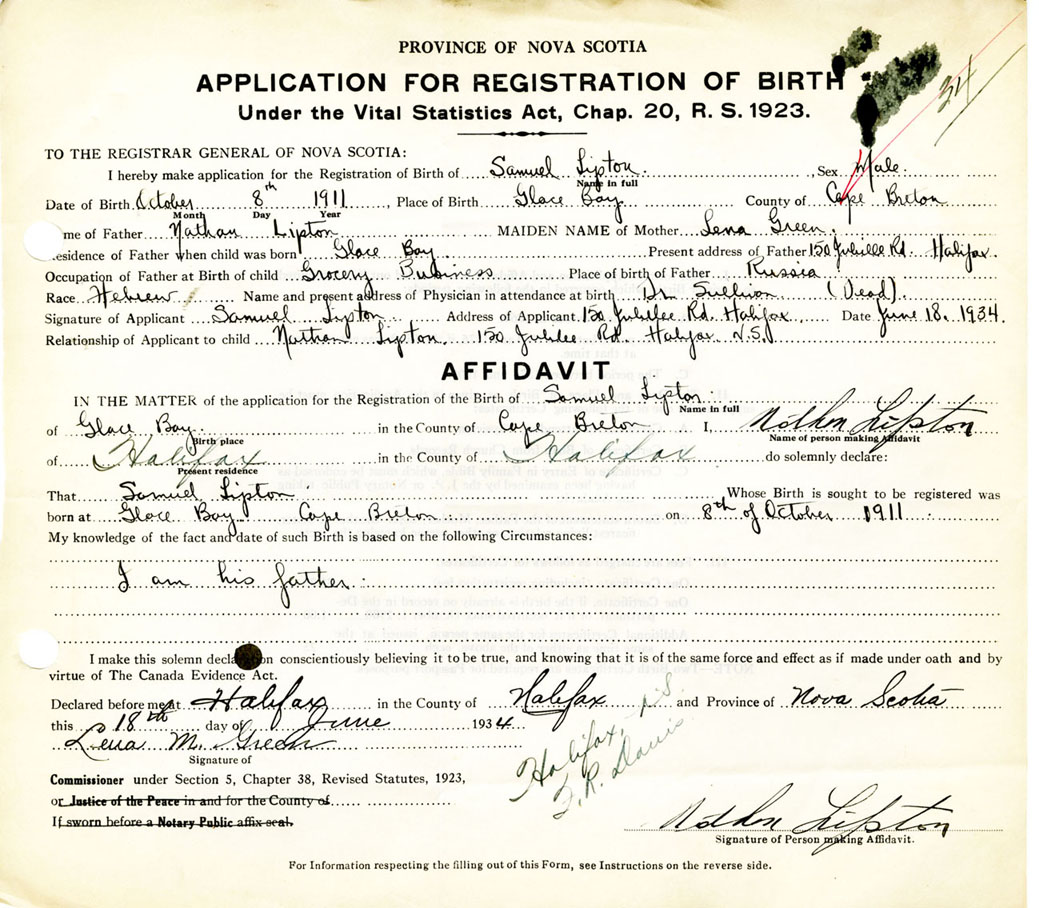 PROVINCE OF NOVA SCOTIA
APPLICATION FOR REGISTRATION OF BIRTH
34
Under the Vital Statistics Act, Chap. 20, R. S. 1923.
TO THE REGISTRAR GENERAL OF NOVA SCOTIA:
I hereby make application for the Registration of Birth of Samuel Lipton. , Sex Male.
Name in full
Date of Birth October 8th 1911 , Place of Birth Glace Bay County of Cape Breton
Month Day Year
me of Father Nathan Lipton MAIDEN NAME of Mother Lena Green.
esidence of Father when child was born Glace Bay Present address of Father 150 Jubilee Rd. Halifax.
Occupation of Father at Birth of child Grocery Business Place of birth of Father Russia
Race Hebrew Name and present address of Physician in attendance at birth Dr Sullivan (Dead).
Signature of Applicant Samuel Lipton Address of Applicant 150 Jubilee Rd. Halifax Date June 18. 1934.
Relationship of Applicant to child Nathan Lipton. 150 Jubilee Rd. Halifax N.S.
AFFIDAVIT
IN THE MATTER of the application for the Registration of the Birth of Samuel Lipton
Name in full
of Glace Bay in the County of Cape Breton I, Nathan Lipton
Birth place Name of person making Affidavit
of Halifax in the County of Halifax do solemnly declare:
Present residence
That Samuel Lipton Whose Birth is sought to be registered was
born at Glace Bay Cape Breton on 8th of October 1911
My knowledge of the fact and date of such Birth is based on the following Circumstances:
I am his father
I make this solemn declaration conscientiously believing it to be true, and knowing that it is of the same force and effect as if made under oath and by
virtue of The Canada Evidence Act.
Declared before me at Halifax in the County of Halifax and Province of Nova Scotia
this 18th day of June 1934
Lena M. Green
Signature of
Halifax, N.S.
F. R. Davis
Commissioner under Section 5, Chapter 38, Revised Statutes, 1923,
or Justice of the Peace in and for the County of
If sworn before a Notary Public affix seal.
Nathan Lipton
Signature of Person making Affidavit.
For Information respecting the filling out of this Form, see Instructions on the reverse side.